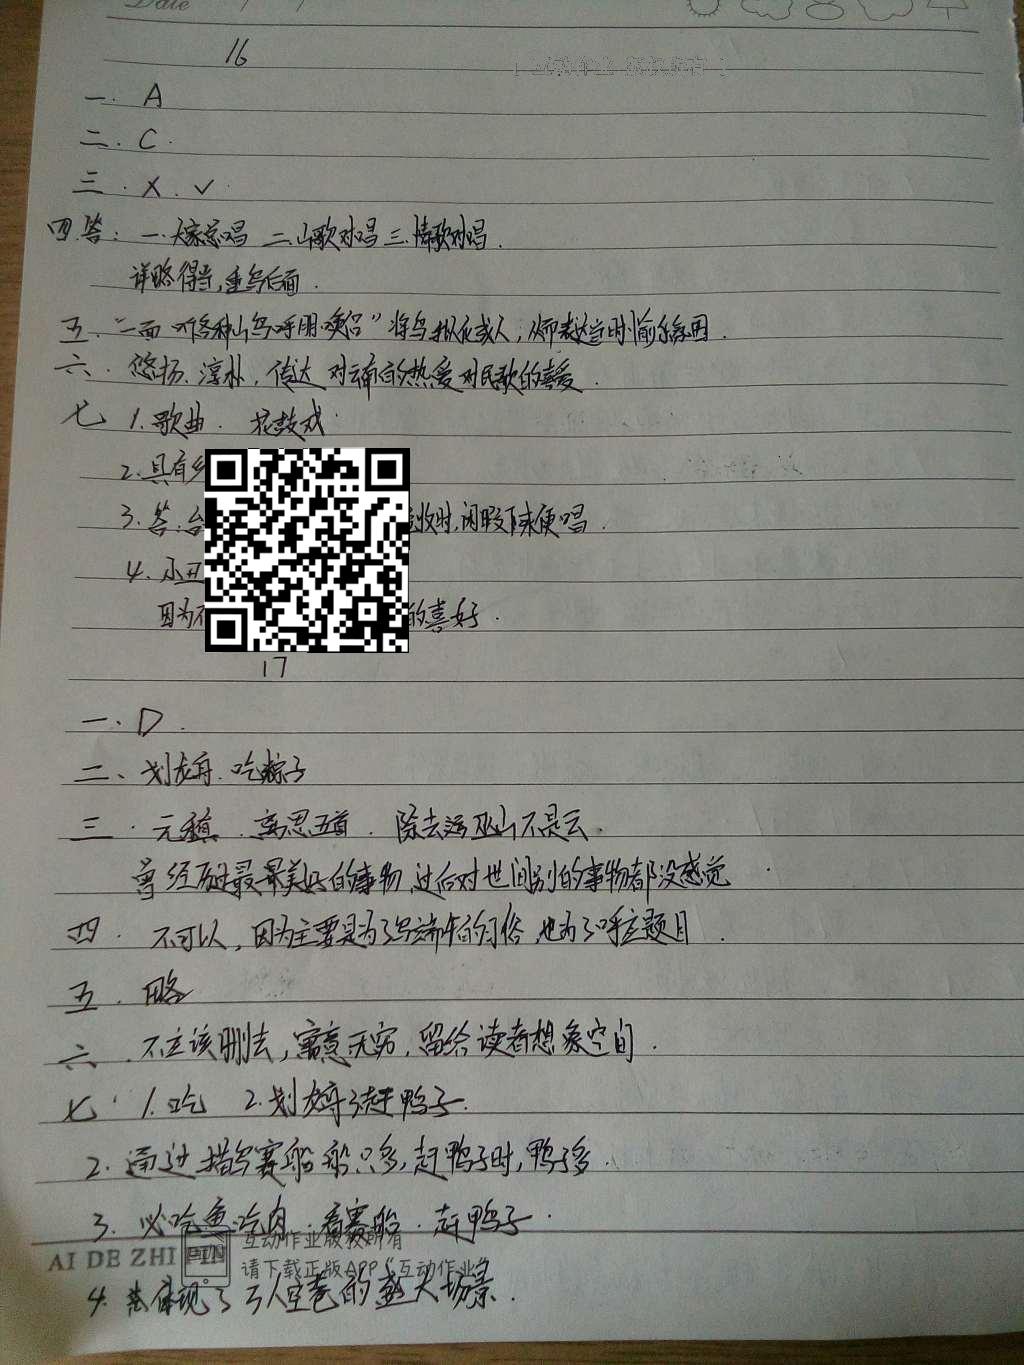 Date / /
16
一. A
二. C.
三. X. ✓.
四.答: 一.大家总唱 二.山歌对唱 三.情歌对唱.
详略得当,重写后面.
五. “一面听各种山鸟呼朋唤侣”将鸟拟化成人,从而表达当时愉乐氛围.
六. 悠扬.淳朴,传达对云南的热爱对民歌的喜爱.
七 1.歌曲. 花鼓戏
2.具有乡
3.答:台 收时,闲暇下来便唱.
4.小丑
因为不 的喜好.
17
一. D.
二、划龙舟.吃粽子
三.元稹.离思五首.除去巫山不是云.
曾经历过最最美好的事物,过后对世间别的事物都没感觉
四. 不可以,因为主要是为了写端午的习俗,也为了呼应题目.
五. 略
六.不应该删去,寓意无穷,留给读者想象空间.
七. 1.吃 2.划龙舟 3赶鸭子.
2.通过描写赛船船只多,赶鸭子时,鸭子多.
3. 必吃鱼吃肉.看赛船.赶鸭子.
AI DE ZHI PIN
互动作业版权所有
请下载正版APP“互动作业”
4. 体现了万人空巷的盛大场景.